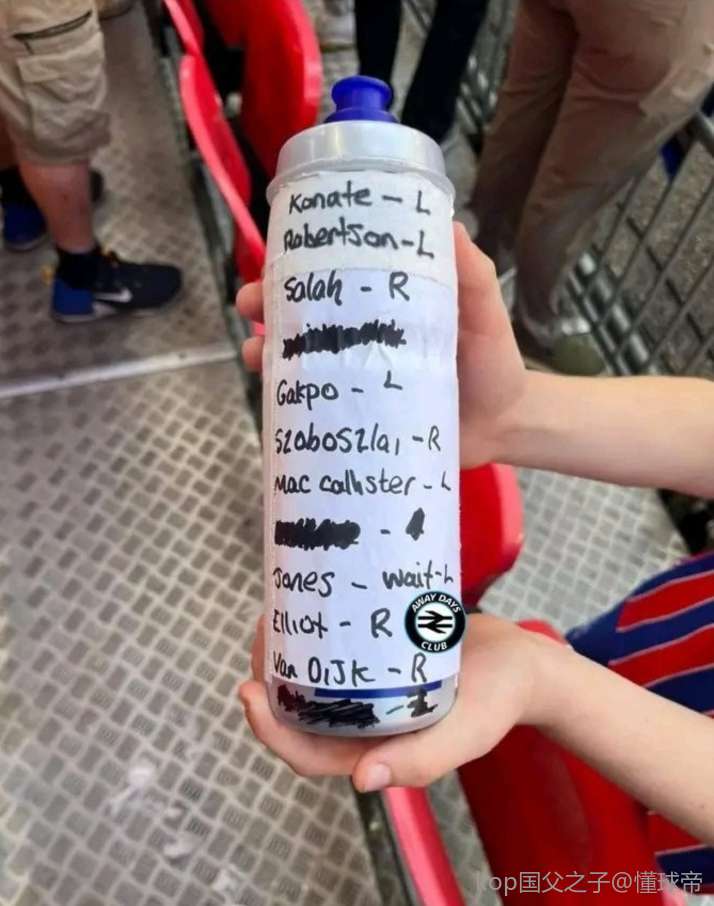 Konate - L
Robertson - L
Salah - R
Gakpo - L
Szoboszlai - R
Mac callister - L
Jones - wait - L
AWAY DAYS
CLUB
Elliot - R
Van DIJK - R
kop国父之子@懂球帝